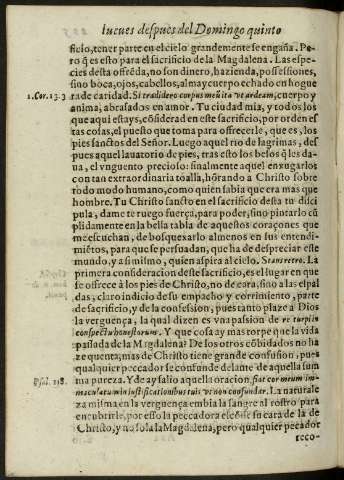 Iueues despues del Domingo quinto
ficio, tener parte en el cielo grandemente se engaña. Pe-
ro q̃ es esto para el sacrificio de la Magdalena. Las espe-
cies desta ofrẽda, no son dinero, hazienda, possessiones,
sino boca, ojos, cabellos, al muy cuerpo echado en hogue
1. Cor. 13. 3
ra de caridad. Si tradidero corpus meum ita vt ardeam, cuerpo y
anima, abrasados en amor. Tu ciudad mia, y todos los
que aqui estays, cõsiderad en este sacrificio, por orden es
tas cosas, el puesto que toma para offrecerle, que es, los
pies sanctos del Señor. Luego aquel rio de lagrimas, des
pues aquel lauatorio de pies, tras esto los besos q̃ les da-
ua, el vnguento precioso: finalmente aquel enxugarlos
con tan extraordinaria toalla, hõrando a Christo sobre
todo modo humano, como quien sabia que era mas que
hombre. Tu Christo sancto en el sacrificio desta tu disci
pula, dame te ruego fuerça, para poder, sino pintarlo cũ
plidamente en la bella tabla de aquestos coraçones que
me escuchan, debosquexarlo almenos en sus entendi-
miẽtos, para que se persuadan, que ha de despreciar este
mundo, y a si mismo, quien aspira al cielo. Stans retro. La
primera consideracion deste sacrificio, es el lugar en que
se offrece à los pies de Christo, no de cara, sino a las espal
das, claro indicio de su empacho y corrimiento, parte
de sacrificio, y de la confession, pues tanto plaze a Dios
la verguença, la qual dizen es vna passion de re turpi in
conspectu honestorum. Y que cosa ay mas torpe que la vida
passada de la Magdalena? De los otros cõbidados no ha
ze quenta, mas de Christo tiene grande confusion, pues
qualquier peccador se confunde delante de aquella sum
ma pureza. Y de ay salio aquella oracion, fiat cor meum im-
Psal. 118.
maculatum in iustificationibus tuis vt non confundar. La naturale
za misma en la verguença embia la sangre al rostro para
encubrirle, por esso la peccadora escõde su cara de la de
Christo, y no sola la Magdalena, pero qualquier peccador